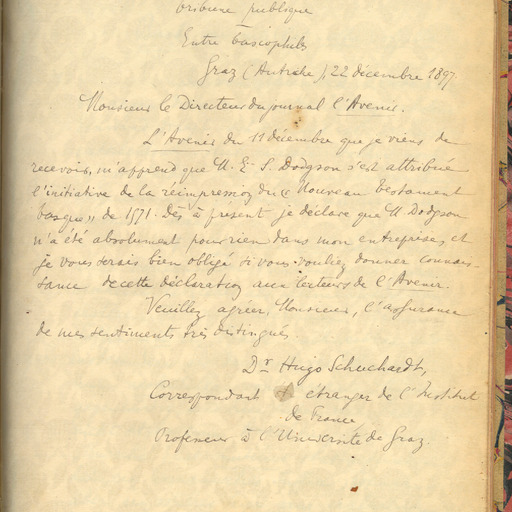 Tribune publique
Entre bascophiles
Graz (Autriche) 22 décembre 1897.
Monsieur le Directeur du journal l'Avenir.
L'Avenir du 11 décembre que je viens de
recevoir, m'apprend que M. E. S. Dodgson s'est attribué
l'initiative de la réimpression du « Nouveau testament
basque » de 1571. Dès à présent je déclare que M Dodgson
n'a été absolument pour rien dans mon entreprise, et
je vous serais bien obligé si vous vouliez donner connais-
sance de cette déclaration aux lecteurs de l'Avenir.
Veuillez agréer, Monsieur, l'assurance
de mes sentiments très distingués.
Dr Hugo Schuchardt,
Correspondant étranger de l'Institut
de France
Professeur à l'Université de Graz.